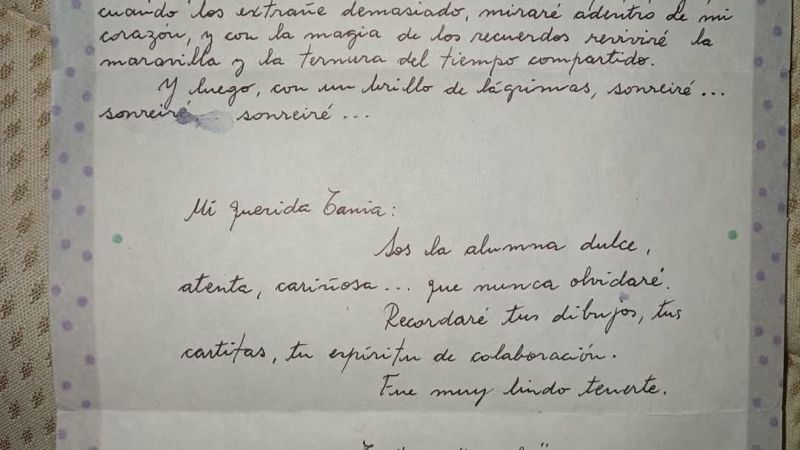 cuando los extrañe demasiado, miraré adentro de mi
corazón, y con la magia de los recuerdos reviviré la
maravilla y la ternura del tiempo compartido.
Y luego, con un brillo de lágrimas, sonreiré...
sonreiré. sonreiré...
Mi querida Tania:
Sos la alumna dulce,
atenta, cariñosa... que nunca olvidaré.
Recordaré tus dibujos, tus
cartitas, tu espíritu de colaboración.
Fue muy lindo tenerte.